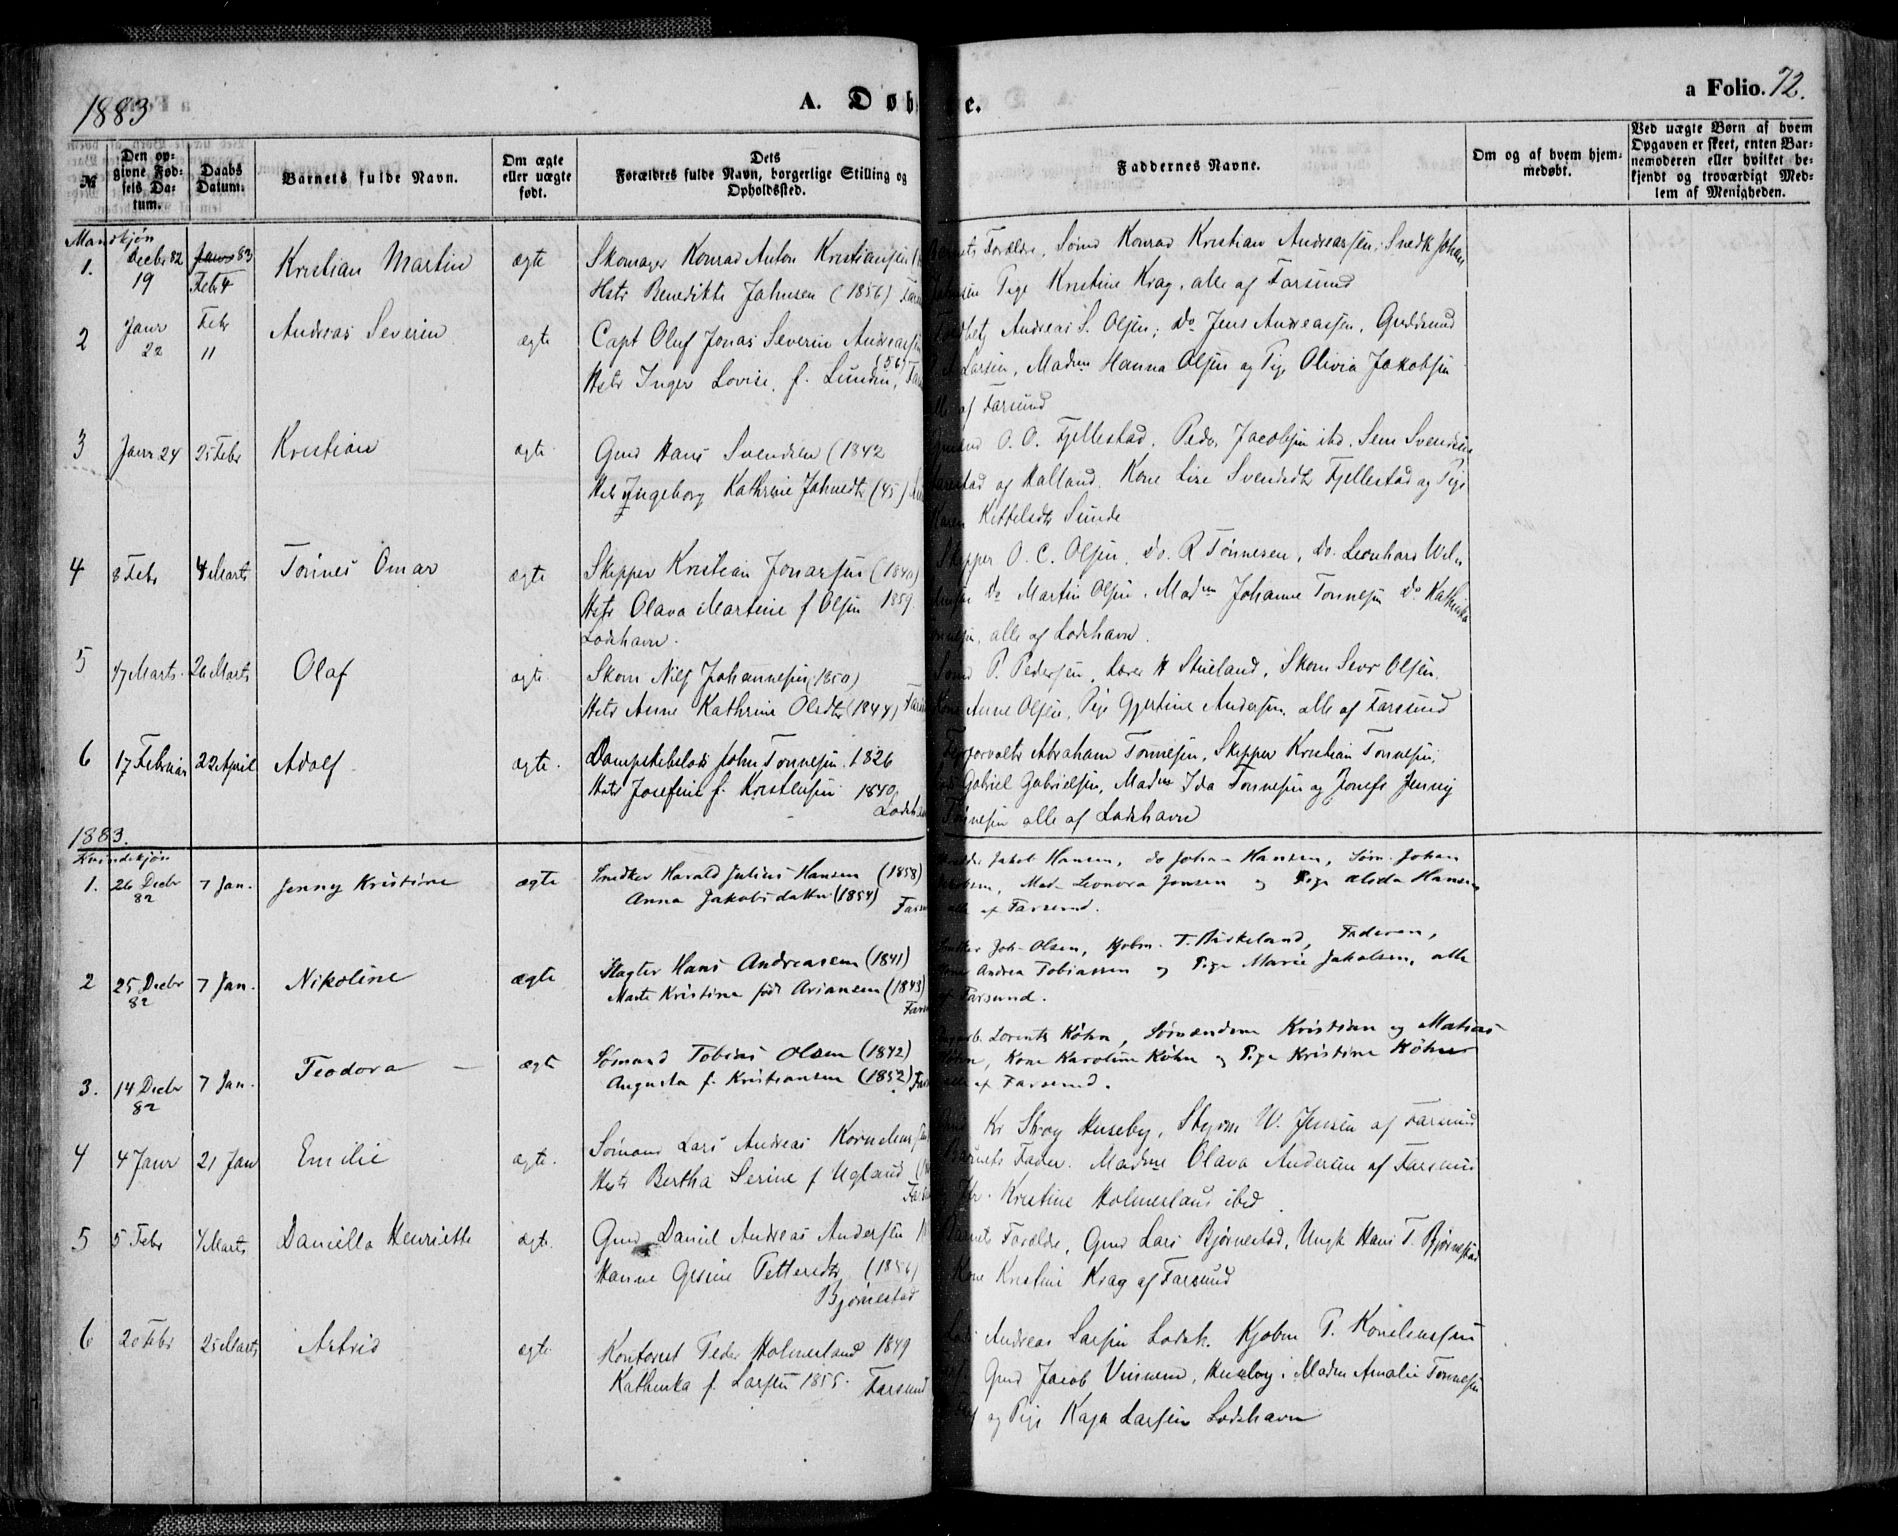 1883
A. Døb
e.
a Folio. 72.
№
Den opgivne Fødsels Datum.
Daabs Datum.
Barnets fulde Navn.
Om ægte eller uægte født.
Dets Forældres fulde Navn, borgerlige Stilling og Opholdssted.
Faddernes Navne.
Om og af hvem hjemmedøbt.
Ved uægte Børn af hvem Opgaven er skeet, enten Barnemoderen eller hvilket bekjendt og troværdigt Medlem af Menigheden.
Mandkjøn
1. Decbr 82 19 Janr 83 Febr 4 Kristian Martin ægte Skomager Konrad Anton Kristiansen
Hstr Benedikte Jahnsen (1856)
Forældre, Sømd Konrad Kristian Andreassen, Snedk Johan
Pige Kristine Krag, alle af Farsund
2 Janr 22 Febr 11 Andreas Severin ægte Capt Oluf Jonas Severin Andreassen
Hstr Inger Lovise f. Lunden, (56)
Andreas S. Olsen; Do Jens Andreassen, Guldsmd
Larsen, Madm Hanna Olsen og Pige Olivia Jakobsen
af Farsund
3 Janr 24 25 Febr Kristian ægte Gmd Hans Svendsen (1842
Hstr Ingeborg Kathrine Jahnsdtr (45)
O. O. Fjellestad, Peder Jacobsen ibd. Sem Svendsen
og Kalland. Kone Lise Svendsdtr Fjellestad og Pige
Karen Kittelsdtr Sunde
4 8 Febr 4 Marts Tønnes Omar ægte Skipper Kristian Jonassen (1840)
Hstr Olava Martine f Olsen 1859.
Lodshavn.
Skipper O. C. Olsen, Do. R Tønnesen, Do. Leonhard
Do Martin Olsen, Madm Johanne Tønnesen Do Kathinka
alle af Lodshavn.
5 17 Marts 26 Marts Olaf ægte Skom Nils Johannesen (1850)
Hstr Anne Kathrine Olsdtr (1844)
Sømd P. Pedersen, Lærer H Stueland, Skom Sevr Olsen.
Kone Anne Olsen, Pige Gjertine Andersen, alle af Farsund
6 17 Februar 22 April Adolf ægte. Dampskibslods John Tønnesen 1826
Hstr Josefine f. Kristensen 1840,
Abraham Tønnesen, Skipper Kristian Tønnesen,
Gabriel Gabrielsen, Madm Ida Tønnesen og Jomfr Jenny
Tønnesen alle af Lodshavn
1883.
Kvindekjøn
1. 26 Decbr 82 7 Jan. Jenny Kristine ægte Snedker Harald Julius Hansen (1858)
Anna Jakobsdatter (1854)
Jakob Hansen, do Johan Hansen, Søm. Johan
Mad. Leonora Jensen og Pige Alida Hansen
alle af Farsund.
2 25 Decbr 82 7 Jan. Nikoline ægte Slagter Hans Andreasen (1841)
Marte Kristine født Ariansen (1843)
Joh. Olsen, Kjøbm. T. Birkeland, Faderen,
Kone Andrea Tobiassen og Pige Marie Jakobsen, alle
af Farsund.
3. 14 Decbr 82 7 Jan. Teodora ægte Sømand Tobias Olsen (1842)
Augusta f. Kristiansen (1852)
Lorents Køhn, Sømændene Kristian og Matias
Køhn, Kone Karoline Køhn og Pige Kristine Køhn
alle af Farsund.
4 4 Janr 21 Jan Emilie ægte. Sømand Lars Andreas
Hstr Bertha Serine f Ugland
Kr Stray Huseby, Styrm W. Jensen af Farsund
Barnets Fader. Madme Olava Andersen af Farsund
Kristine Holmesland ibid
5 5 Febr 4 Marts Daniella Henriette ægte Gmd Daniel Andreas Andersen
Hanne Gesine Tetteredtr (1856)
Bjørnestad
Barnets Forældre, Gmd Lars Bjørnestad, Ungk Hans T. Bjørnestad
Kone Kristine Krag af Farsund
6 20 Febr 25 Marts Astrid ægte Kontorist Peder Holmesland 1849
Kathinka f. Larsen 1855. Farsund
Andreas Larsen Lodsh. Kjøbm P.
Gmd Jacob Vinnem, Huseby, Madm Amalie Tønnesen
og Pige Kaja Larsen Lodshavn